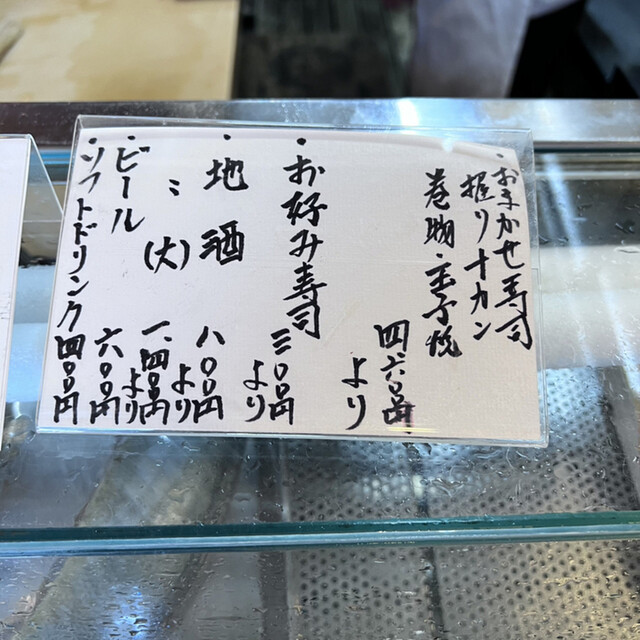 ・おまかせ寿司
握り十カン
巻物・玉子焼
四六〇〇円
より
・お好み寿司
三〇〇円
より
・地酒
八〇〇円
より
〃(大)
一、四〇〇円
より
・ビール
六〇〇円
・ソフトドリンク
四〇〇円